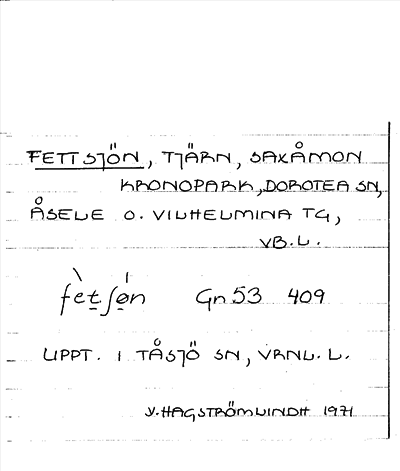 FETTSJÖN, TJÄRN, SAXÅMON
KRONOPARK, DOROTEA SN,
ÅSELE O. VILHELMINA TG,
VB.L.
fètʃǿn Gn 53 409
UPPT. I TÅSJÖ SN, VRNL. L.
V. HAGSTRÖM LINDH 1971